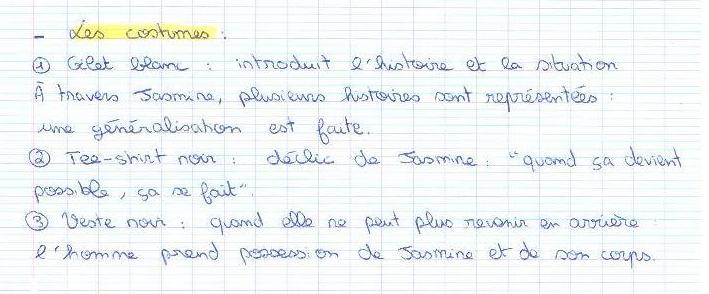 - Les costumes :
① Gilet blanc : introduit l'histoire et la situation
À travers Jasmine, plusieurs histoires sont représentées :
une généralisation est faite.
② Tee-shirt noir : déclic de Jasmine : "quand ça devient
possible, ça se fait".
③ Veste noir : quand elle ne peut plus revenir en arrière
l'homme prend possession de Jasmine et de son corps.